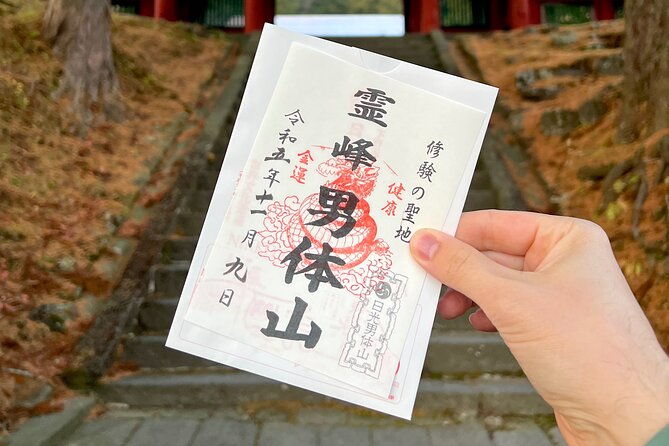 修験の聖地
霊峰男体山
健康
金運
令和五年十一月九日
日光男体山